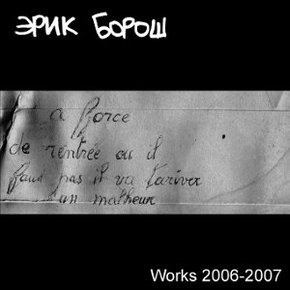 ЭРИК БОРОШ
a force
de rentrée ou il
faut pas il va t'ariver
un malheur
Works 2006-2007